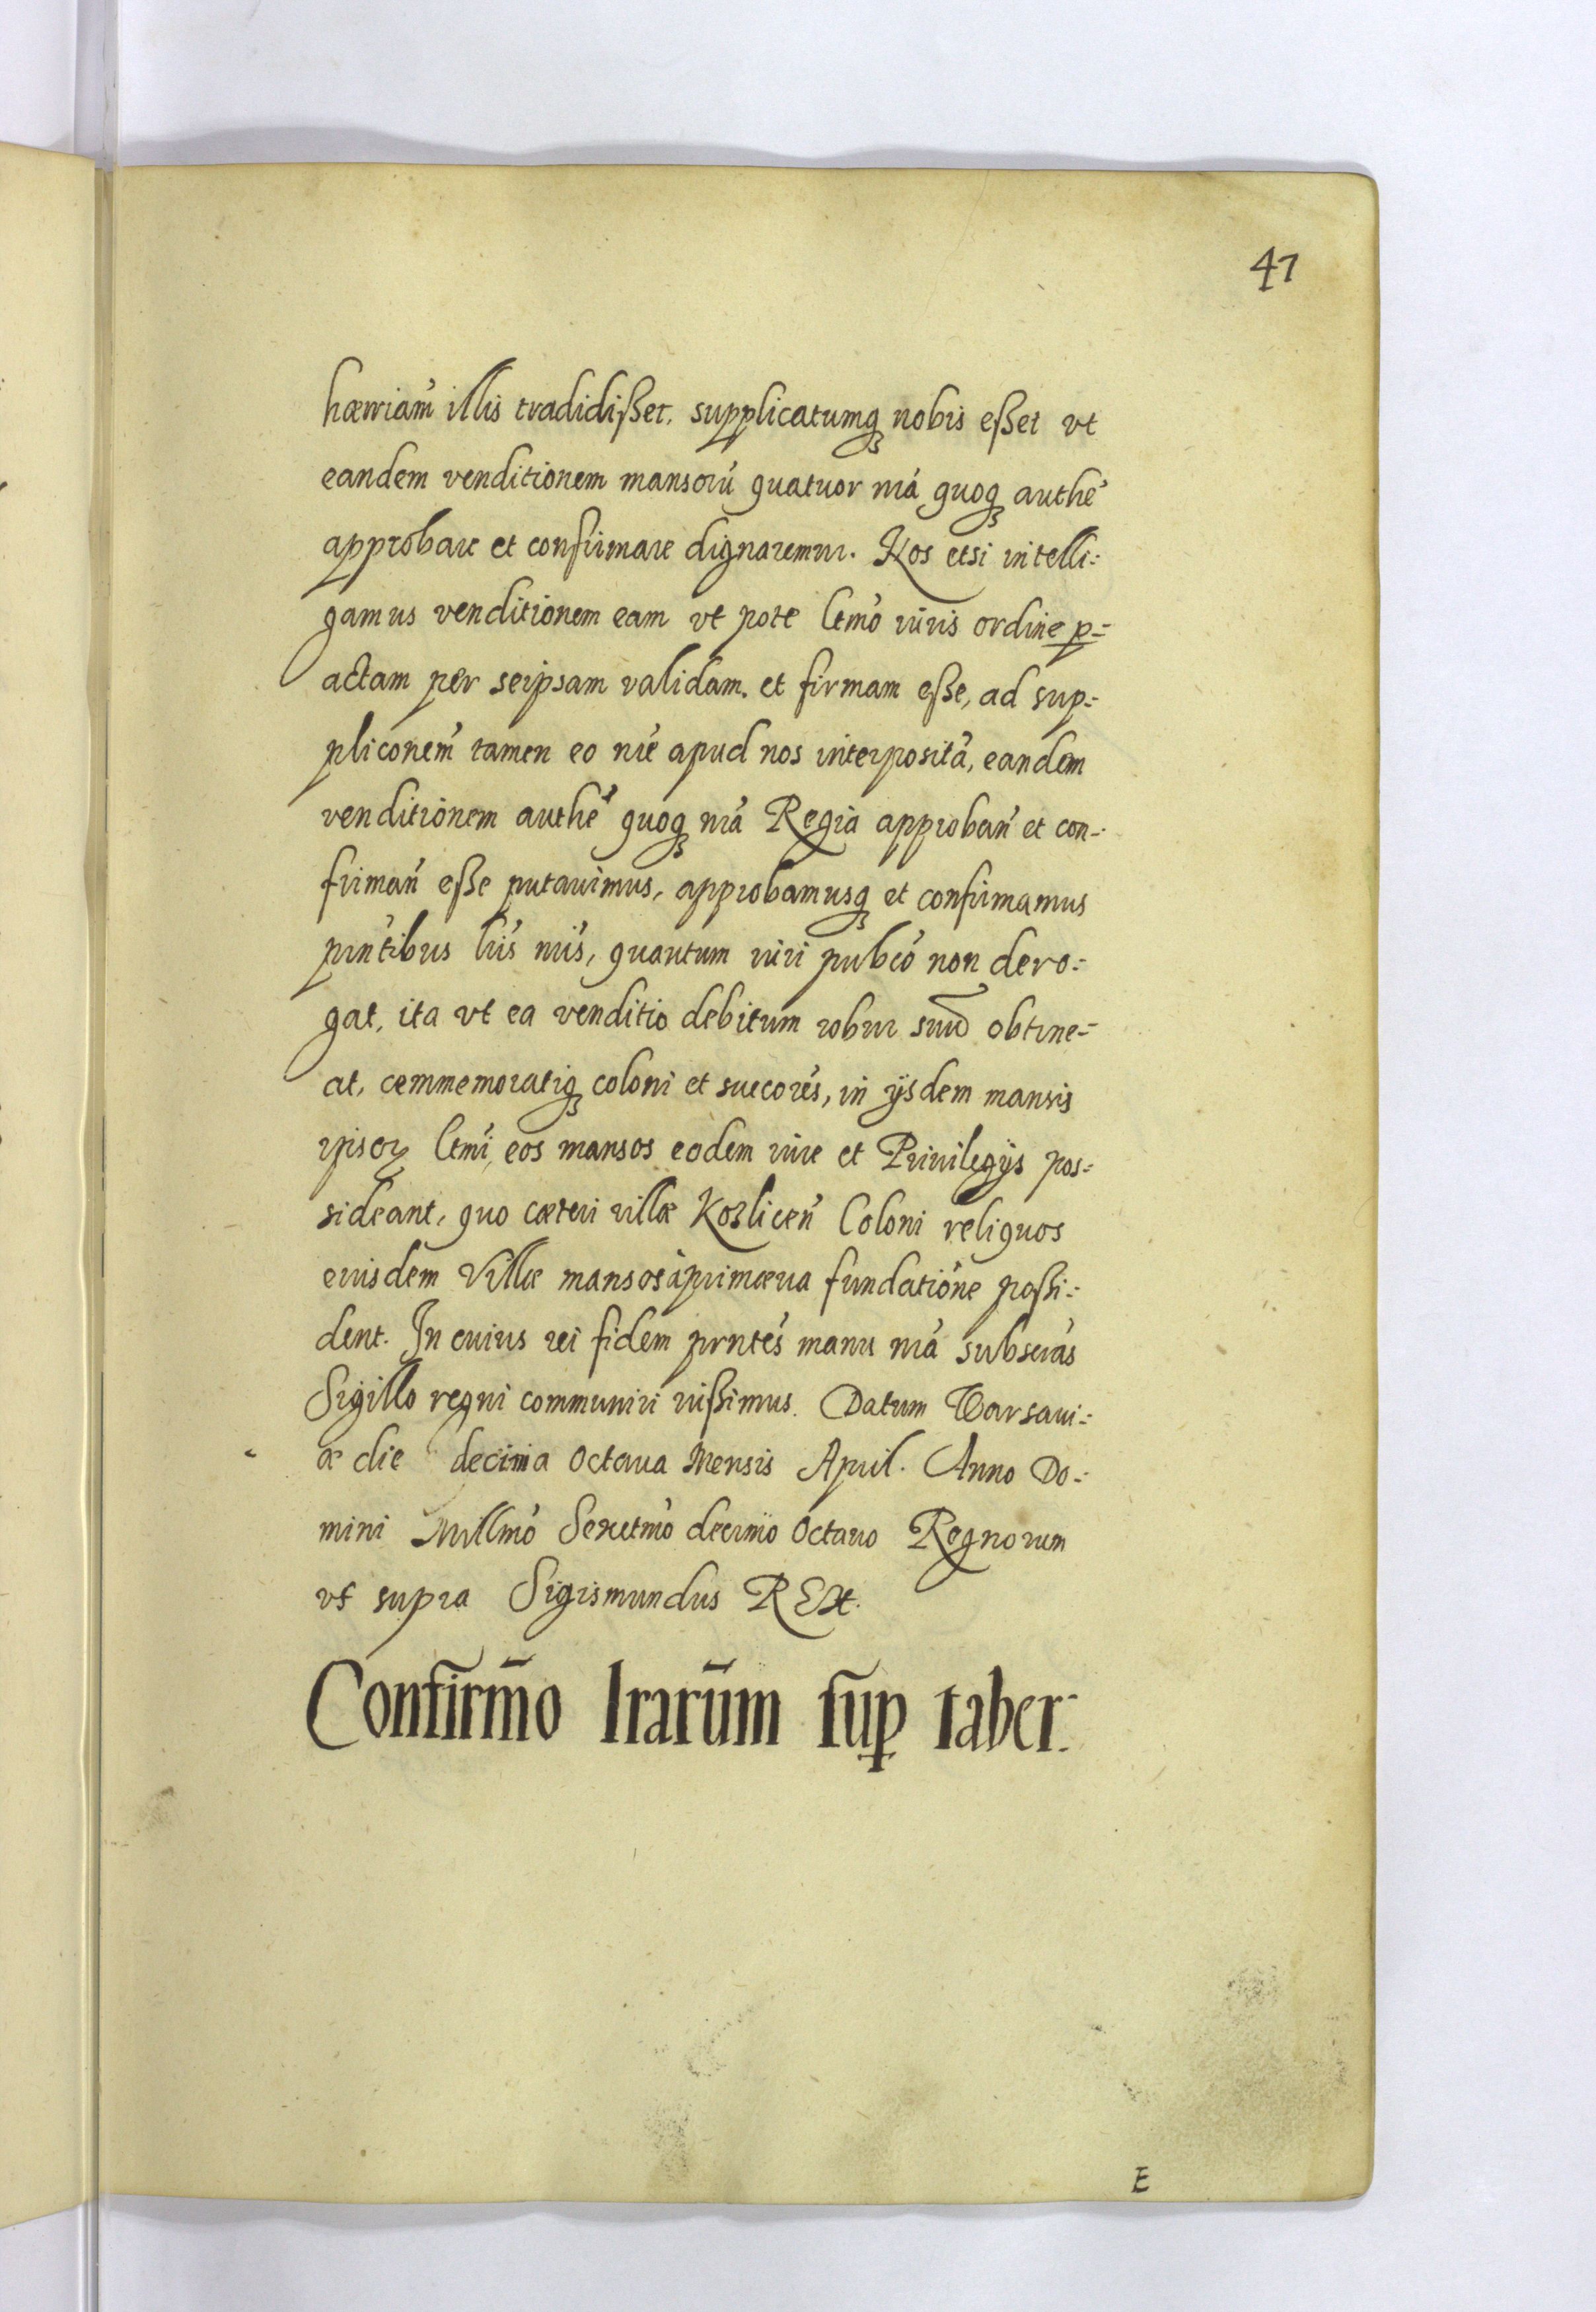 47
hærriam̃ illis tradidißet, supplicatumqꝫ nobis eßet vt
eandem venditionem mansorũ quatuor nrã quoqꝫ authẽ
approbare et confirmare dignaremur. Nos etsi intelli:
gamus venditionem eam vt pote ltmõ iuris ordine p=
actam per seipsam validam. et firmam eße, ad sup=
pliconem̃ tamen eo nĩe apud nos interpositã, eandem
venditionem authẽ quoqꝫ nrã Regia approban̄ et con-
firman̄ eße putauimus, approbamusqꝫ et confirmamus
prñtibus lrĩs nrĩs, quantum iuri pubcõ non dero:
gat, ita vt ea venditio debitum robur suũ obtine=
at, commemoratiqꝫ coloni et succorẽs, in ijsdem mansis
ipsorꝫ ltmĩ, eos mansos eodem iure et Priuilegijs pos:
sideant, quo cæteri villæ Kozlicen̄ Coloni reliquos
eiusdem Villæ mansos à primæua fundatione poßi:
dent. In cuius rei fidem prntẽs manu nrã subscrãs
Sigillo regni communiri iußimus. Datum Varsaui:
æ die decima octaua Mensis April. Anno Do:
mini Millmõ Sexctmõ decimo octauo Regnorum
vt supra Sigismundus REX.
Confirm̄o lrarūm sup̄ taber:
E